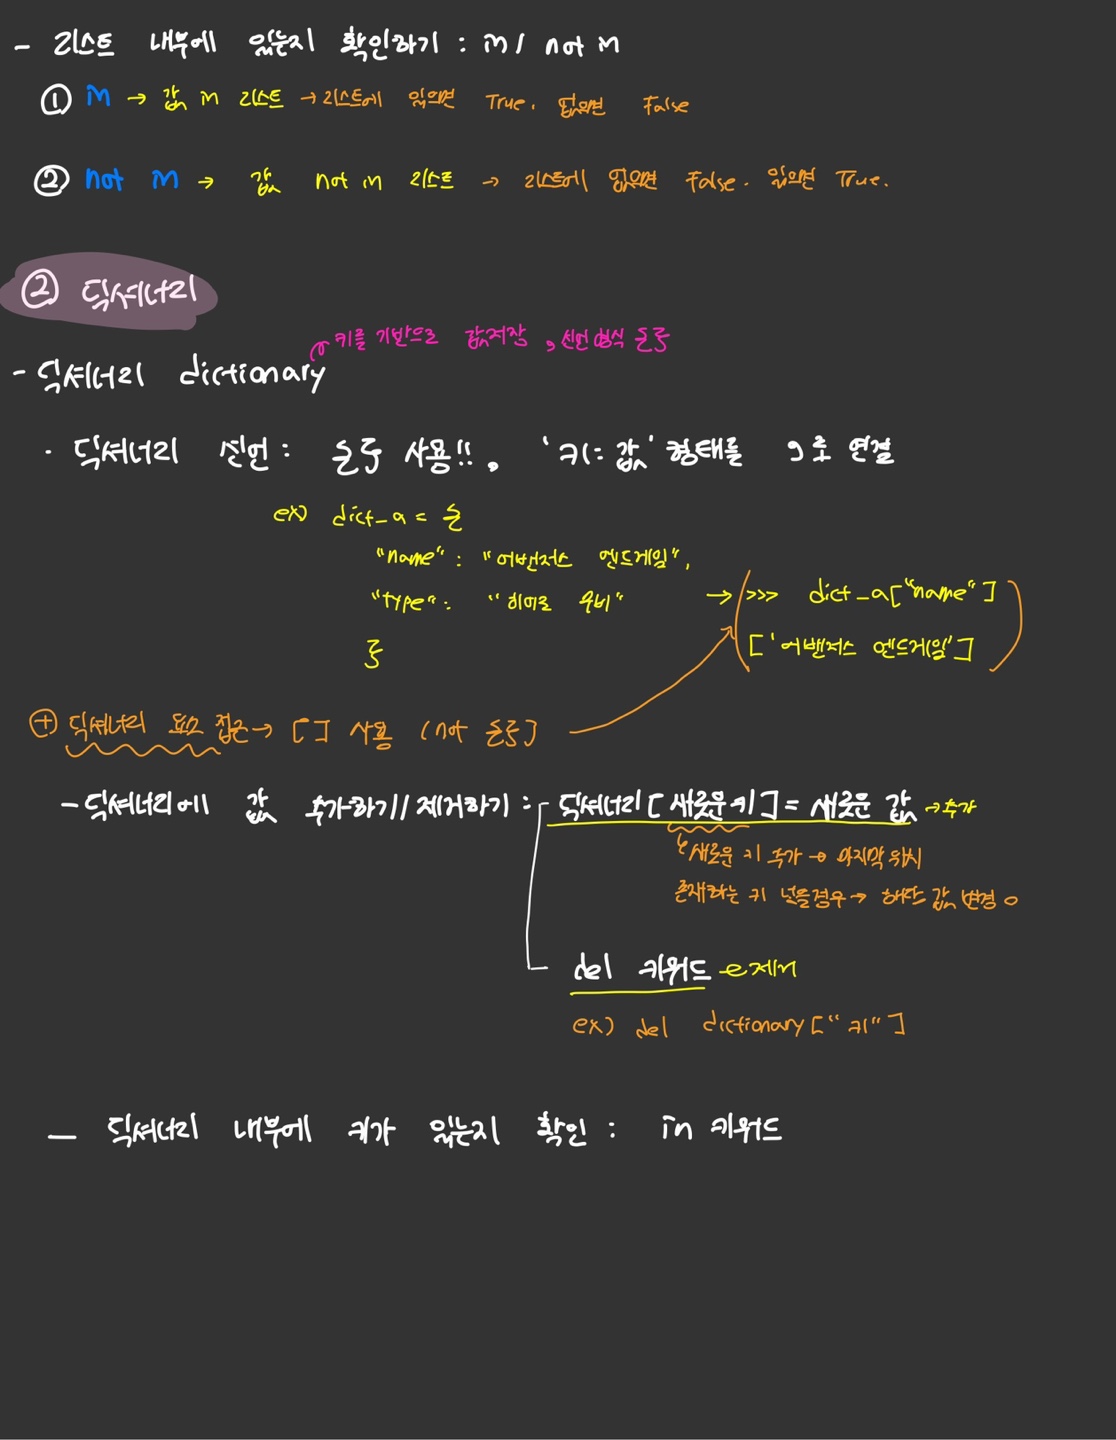 - 리스트 내부에 있는지 확인하기 : in / not in
① in → 값 in 리스트 → 리스트에 있으면 True. 없으면 False
② not in → 값 not in 리스트 → 리스트에 없으면 False. 있으면 True.
② 딕셔너리
키를 기반으로 값저장, 선언형식 {}
- 딕셔너리 dictionary
· 딕셔너리 선언 : {} 사용!!. '키: 값' 형태를 , 로 연결
ex) dict_a = {
"name" : "어벤저스 엔드게임",
"type" : "히어로 무비" → >>> dict_a["name"]
} ['어벤저스 엔드게임']
⊕ 딕셔너리 요소 접근 → [] 사용 (not {})
- 딕셔너리에 값 추가하기/제거하기 : 딕셔너리[새로운키] = 새로운 값 → 추가
새로운 키 추가 → 마지막 위치
존재하는 키 넣을경우 → 해당 값 변경 o
del 키워드 제거
ex) del dictionary["키"]
- 딕셔너리 내부에 키가 있는지 확인 : in 키워드